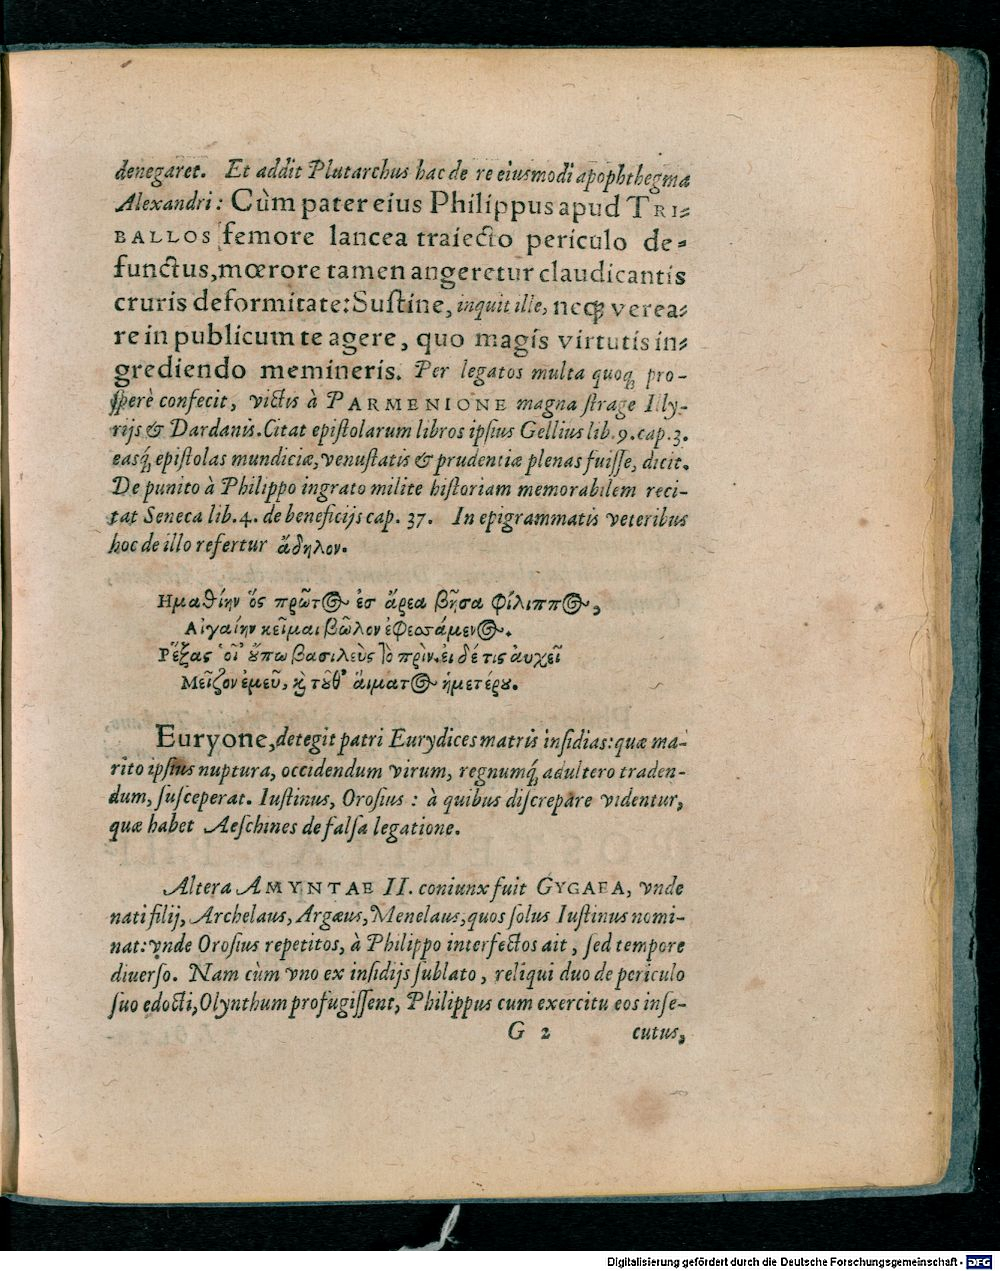 denegaret. Et addit Plutarchus hac de re eiusmodi apophthegma
Alexandri: Cùm pater eius Philippus apud TRI-
BALLOS femore lancea traiecto periculo de-
functus, mœrore tamen angeretur claudicantis
cruris deformitate: Sustine, inquit ille, neq; verea-
re in publicum te agere, quo magis virtutis in-
grediendo memineris. Per legatos multa quoq; pro-
sperè confecit, victis à PARMENIONE magna strage Illy-
rijs & Dardanis. Citat epistolarum libros ipsius Gellius lib. 9. cap. 3.
easq́; epistolas mundiciæ, venustatis & prudentiæ plenas fuisse, dicit.
De punito à Philippo ingrato milite historiam memorabilem reci-
tat Seneca lib. 4. de beneficijs cap. 37. In epigrammatis veteribus
hoc de illo refertur ἄδηλον.
Ημαθίην ὅς πρῶτος ἐσ ἄρεα βῆσα φίλιππος,
Αἰγαίην κεῖμαι βῶλον ἐφεσσάμενος.
Ρέξας οἷ' ούπω βασιλεὺς τὸ πρὶν. ἐι δέ τις ἀυχεῖ
Μεῖζον ἐμεῦ, κὶ τοῦθ' ἅιματος ἡμετέρου.
Euryone, detegit patri Eurydices matris insidias: quæ ma-
rito ipsius nuptura, occidendum virum, regnumq́; adultero traden-
dum, susceperat. Iustinus, Orosius: à quibus discrepare videntur,
quæ habet Aeschines de falsa legatione.
Altera AMYNTAE II. coniunx fuit GYGAEA, vnde
nati filij, Archelaus, Argæus, Menelaus, quos solus Iustinus nomi-
nat: vnde Orosius repetitos, à Philippo interfectos ait, sed tempore
diuerso. Nam cùm vno ex insidijs sublato, reliqui duo de periculo
suo edocti, Olynthum profugissent, Philippus cum exercitu eos inse-
G 2 cutus,
Digitalisierung gefördert durch die Deutsche Forschungsgemeinschaft - DFG